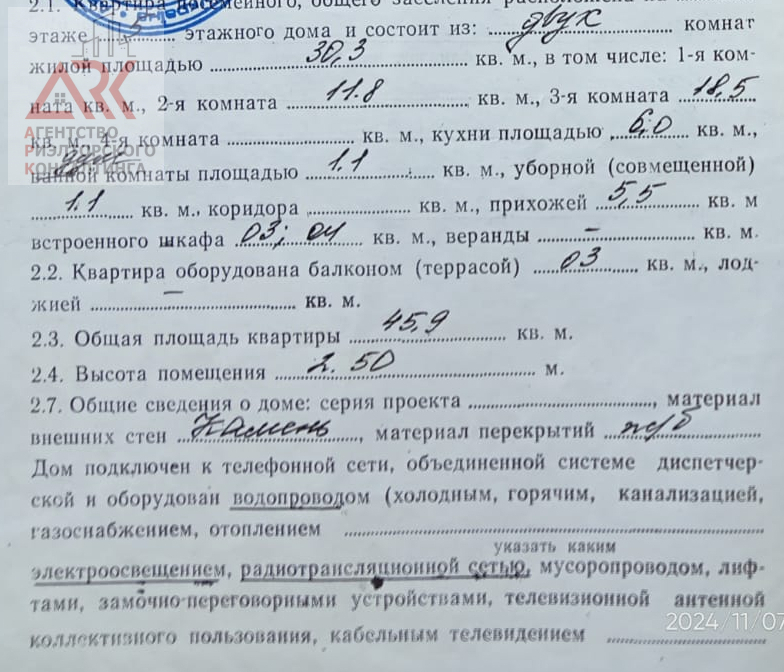 2.1. Квартира посемейного, общего заселения расположена на
этаже 5 этажного дома и состоит из: двух комнат
жилой площадью 30,3 кв. м., в том числе: 1-я ком-
ната кв. м., 2-я комната 11.8 кв. м., 3-я комната 18,5
кв. м., 4-я комната кв. м., кухни площадью 6,0 кв. м.,
ванной комнаты площадью 1.1 кв. м., уборной (совмещенной)
1.1 кв. м., коридора кв. м., прихожей 5,5 кв. м
встроенного шкафа 03; 04 кв. м., веранды – кв. м.
2.2. Квартира оборудована балконом (террасой) 03 кв. м., лод-
жией – кв. м.
2.3. Общая площадь квартиры 45,9 кв. м.
2.4. Высота помещения 2.50 м.
2.7. Общие сведения о доме: серия проекта , материал
внешних стен Камень, материал перекрытий ж/б
Дом подключен к телефонной сети, объединенной системе диспетчер-
ской и оборудован водопроводом (холодным, горячим, канализацией,
газоснабжением, отоплением
указать каким
электроосвещением, радиотрансляционной сетью, мусоропроводом, лиф-
тами, замочно-переговорными устройствами, телевизионной антенной
коллективного пользования, кабельным телевидением
ARK
АГЕНТСТВО
РИЭЛТОРСКОГО
КОНСАЛТИНГА
2024/11/07